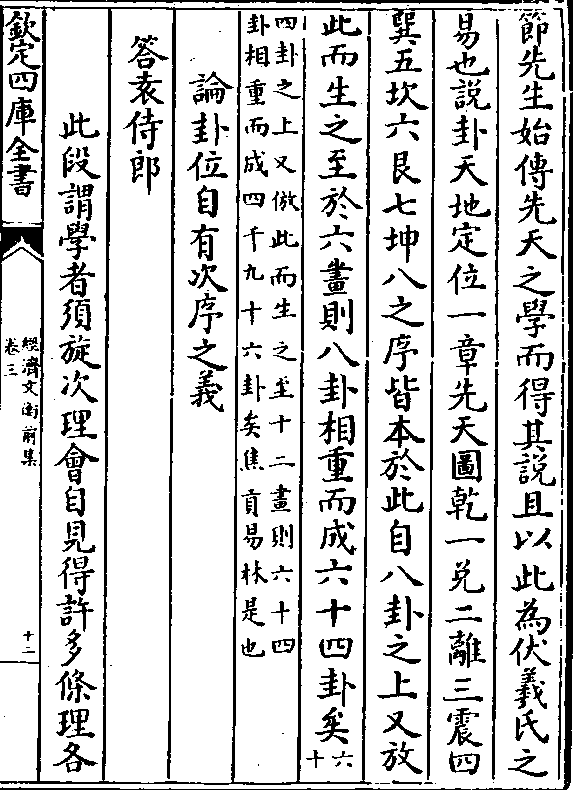 節先生始傳先天之學而得其說且以此為伏羲氏之
易也說卦天地定位一章先天圖乾一兌二離三震四
巽五坎六艮七坤八之序皆本於此自八卦之上又放
此而生之至於六畫則八卦相重而成六十四卦矣六十
四卦之上又倣此而生之至十二畫則六十四
卦相重而成四千九十六卦矣焦貢易林是也
論卦位自有次序之義
答袁侍郎
此段謂學者須旋次理會自見得許多條理各
欽定四庫全書
經濟文衡前集
卷三
十二